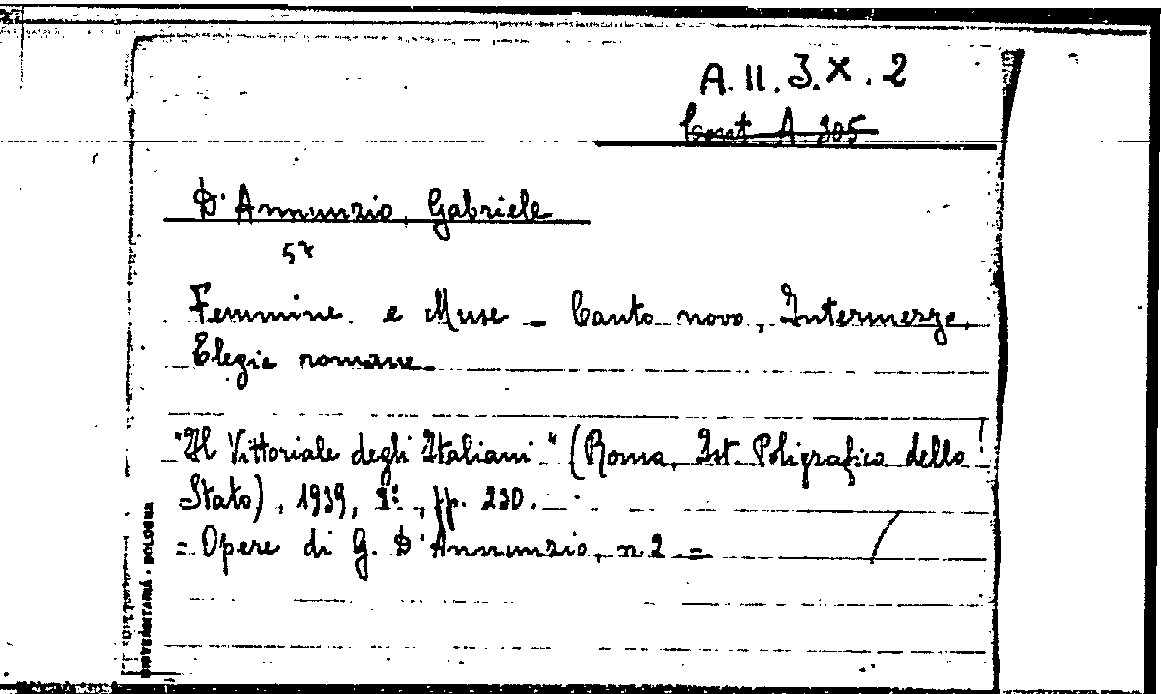 A. II. 3. X. 2
Cont A 305
D'Annunzio, Gabriele
57
Femmine e Muse - Canto novo, Intermezzo,
Elegie romane.
"Il Vittoriale degli Italiani" (Roma, Ist. Poligrafico dello
Stato), 1939, 8°, pp. 230.
= Opere di G. D'Annunzio, n 2 =
UNIVERSITARIA - BOLOGNA